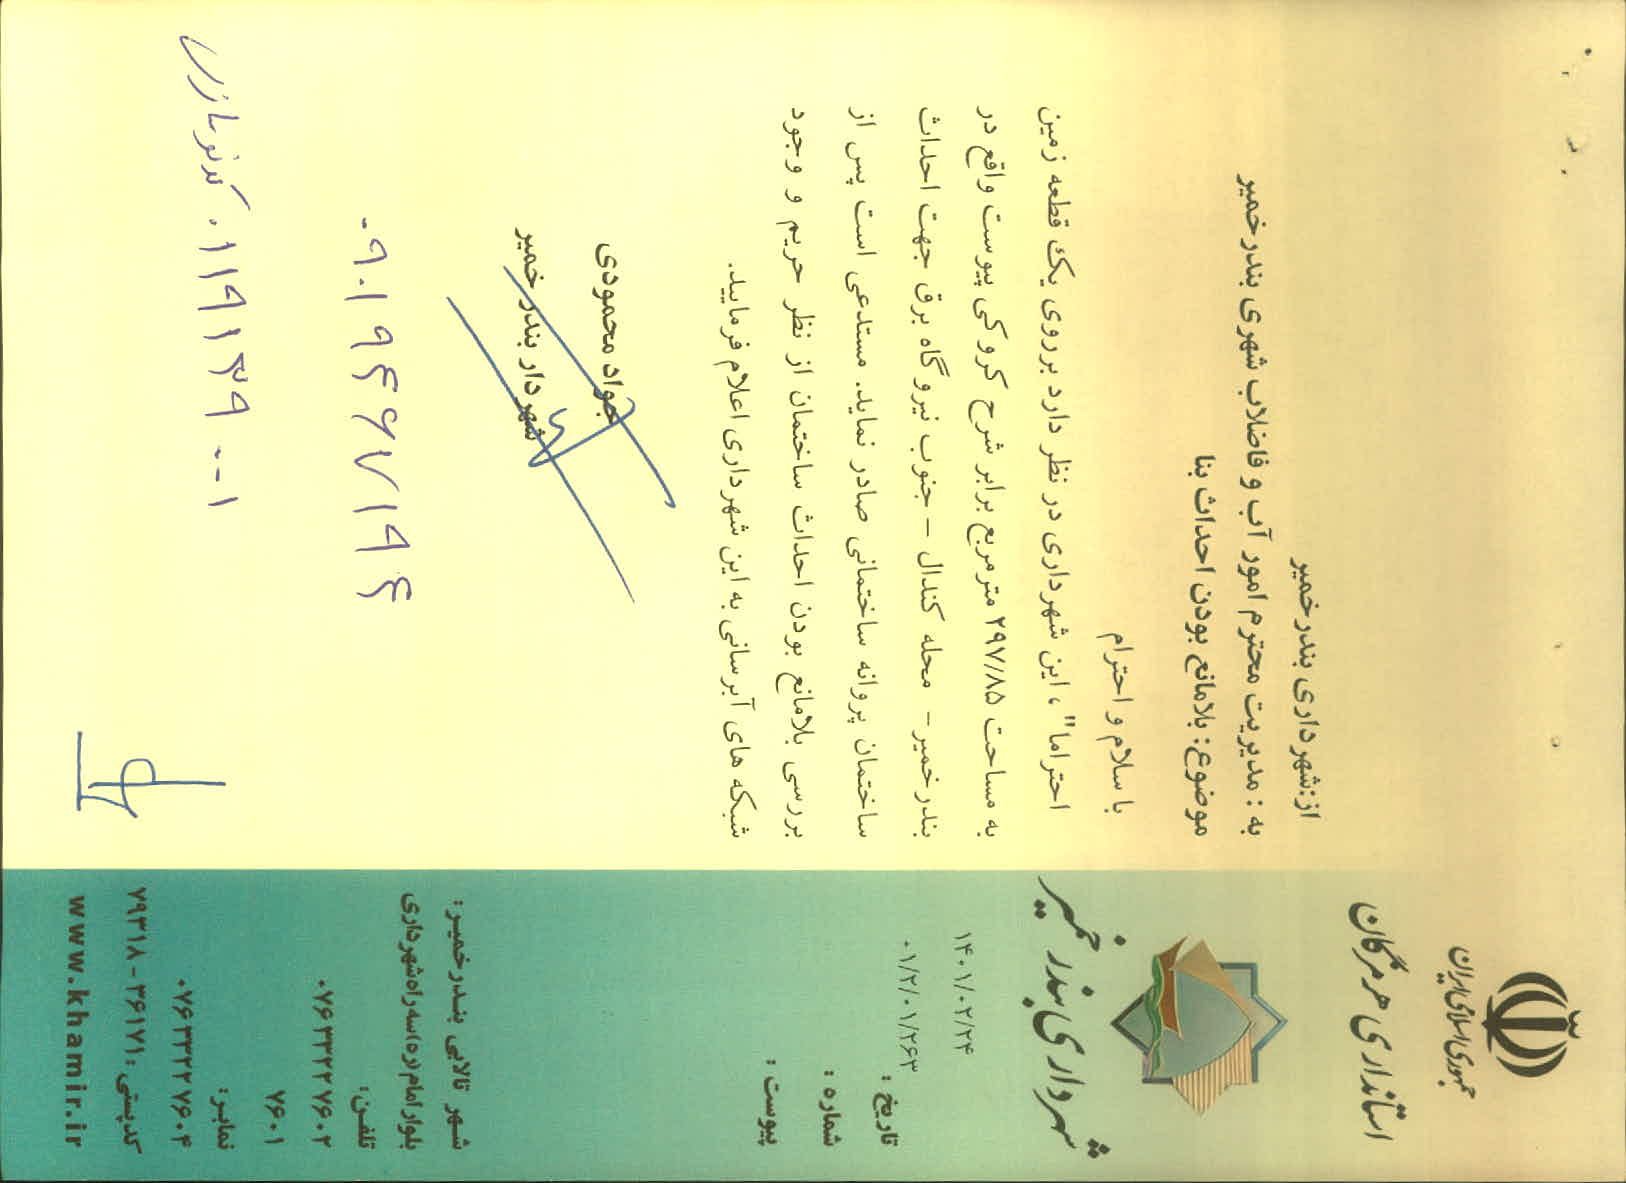 جمهوری اسلامی ایران
استانداری هرمزگان
شهرداری بندر خمیر
۱۴۰۱/۰۲/۲۴
۰۱/۲/۰۱/۲۶۳
تاریخ :
شماره :
پیوست :
از:شهرداری بندرخمیر
به : مدیریت محترم امور آب و فاضلاب شهری بندرخمیر
موضوع: بلامانع بودن احداث بنا
با سلام و احترام
احتراما" ، این شهرداری در نظر دارد برروی یک قطعه زمین
به مساحت ۲۹۷/۸۵ مترمربع برابر شرح کروکی پیوست واقع در
بندرخمیر- محله کندال – جنوب نیروگاه برق جهت احداث
ساختمان پروانه ساختمانی صادر نماید. مستدعی است پس از
بررسی بلامانع بودن احداث ساختمان از نظر حریم و وجود
شبکه های آبرسانی به این شهرداری اعلام فرمایید.
جواد محمودی
شهردار بندر خمیر
۰۹۰۱۹۴۶۷۱۹۴
کدنوسازی ۰۱۱۹۱۳۹۰۰۱
شهر تالابی بندرخمیر:
بلوار امام(ره)سه راه شهرداری
تلفن:
۰۷۶۳۳۲۲۷۶۰۲
۷۶۰۱
نمابر:
۰۷۶۳۳۲۲۷۶۰۴
کدپستی: ۳۶۱۷۱-۷۹۳۱۸
www.khamir.ir